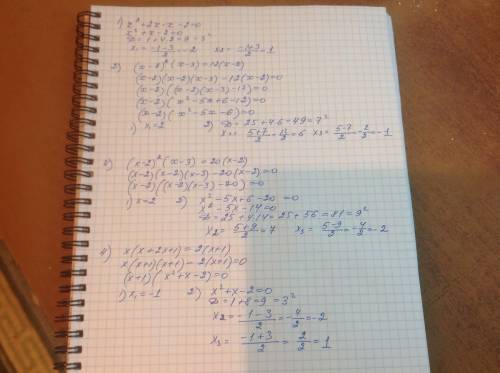 1) x²+2x-x-2=0
x²+x-2=0
D=1+4·2=9=3²
x₁=(-1-3)/2=-2 x₂=(-1+3)/2=1
2) (x-2)²(x-3)=12(x-2)
(x-2)(x-2)(x-3)-12(x-2)=0
(x-2)((x-2)(x-3)-12)=0
(x-2)(x²-5x+6-12)=0
(x-2)(x²-5x-6)=0
1) x=2 2) D=25+4·6=49=7²
x₂=(5+7)/2=12/2=6 x₃=(5-7)/2=-2/2=-1
3) (x-2)²(x-3)=20(x-2)
(x-2)(x-2)(x-3)-20(x-2)=0
(x-2)((x-2)(x-3)-20)=0
1) x=2 2) x²-5x+6-20=0
x²-5x-14=0
D=25+4·14=25+56=81=9²
x₂=(5+9)/2=7 x₃=(5-9)/2=-4/2=-2
4) x(x+2x+1)=2(x+1)
x(x+1)(x+1)-2(x+1)=0
(x+1)(x²+x-2)=0
1) x₁=-1 2) x²+x-2=0
D=1+8=9=3²
x₂=(-1-3)/2=-4/2=-2
x₃=(-1+3)/2=2/2=1